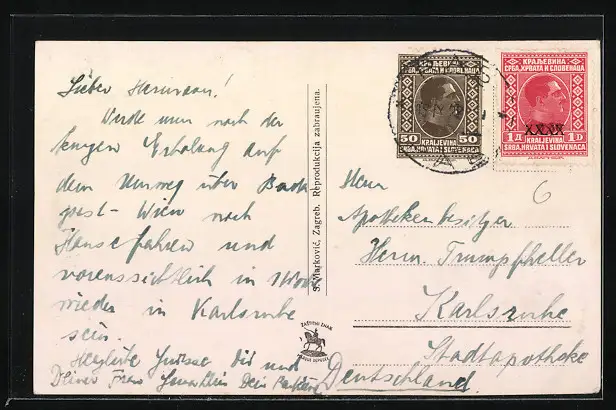 Lieber Hermann!
Werde nun nach der
kurzen Erholung auf
dem Umweg über Buda-
pest - Wien nach
Hause fahren und
voraussichtlich in
wieder in Karlsruhe
sein.
Herzliche Grüsse Dir und
Deiner Frau Dein
S. Marković, Zagreb. Reprodukcija zabranjena.
ZAŠTITNI ZNAK
КРАЉЕВИНА
СРБА, ХРВАТА И СЛОВЕНАЦА
50 50
KRALJEVINA
SRBA, HRVATA I SLOVENACA
КРАЉЕВИНА
СРБА, ХРВАТА И СЛОВЕНАЦА
XXXX
1Д 1D
KRALJEVINA
SRBA, HRVATA I SLOVENACA
6
Herrn
Apothekenbesitzer
Herm. Trumpfheller
Karlsruhe
Stadtapotheke
Deutschland